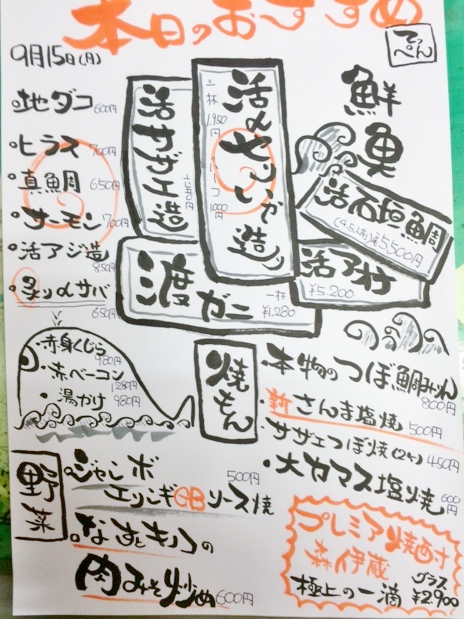 本日のおすすめ
てっぺん
9月15日(月)
鮮魚
・地ダコ 600円
・ヒラス 700円
・真鯛 650円
・サーモン 700円
・活アジ造 850円
・炙りメサバ 650円
活サザエ造
活メやりいか造り
一杯 1,950円
ハーフ 1000円
活石垣鯛
5,500円
活アコウ
¥5,200
渡ガニ
一杯 ¥1,280
・赤身くじら 980円
・赤ベーコン 1280円
・湯かけ 980円
焼もん
・本物のつぼ鯛みりん 800円
・新さんま塩焼 500円
・サザエつぼ焼(2ヶ) 450円
・大カマス塩焼 600円
野菜
・ジャンボエリンギGBソース焼 500円
・なすとキノコの
肉みそ炒め 600円
プレミア焼酎
森伊蔵
極上の一滴
グラス ¥2,900